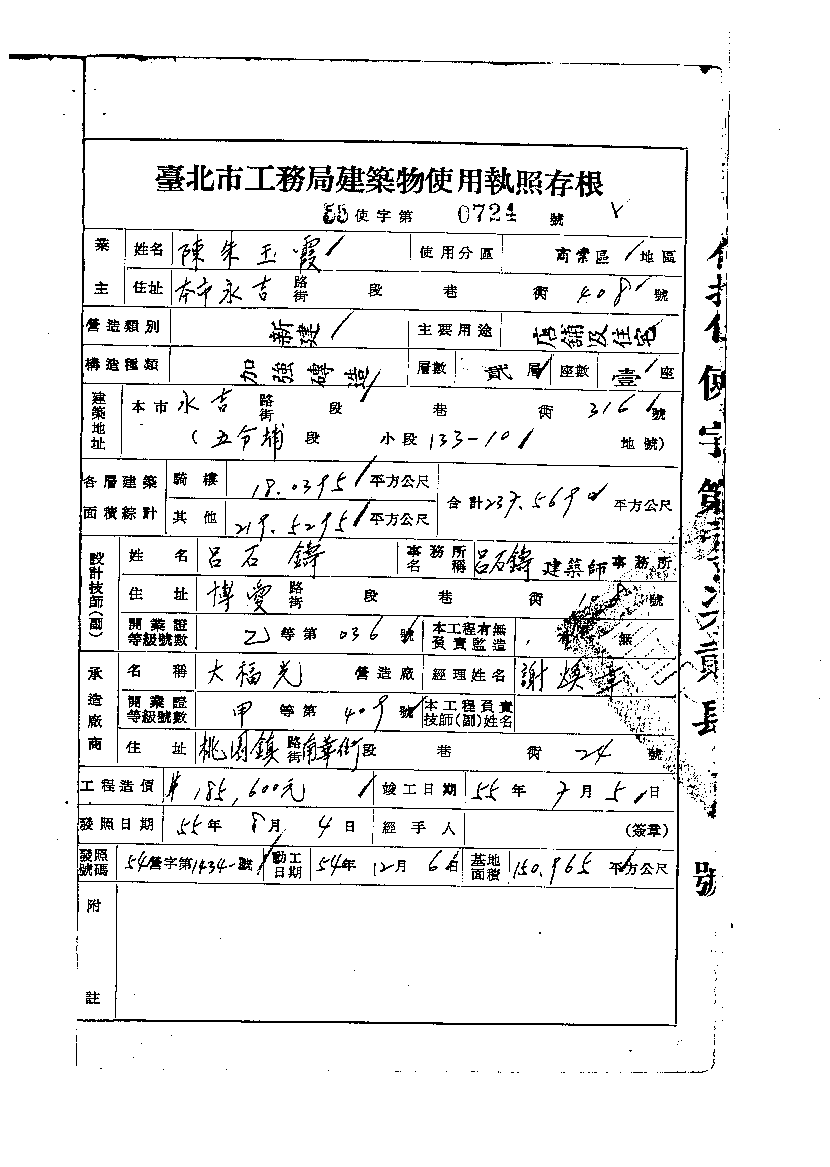 臺北市工務局建築物使用執照存根
55使字第 0724 號
業主 姓名 陳朱玉霞 使用分區 商業區 地區
住址 本市永吉 路街 段 巷 衖 408 號
營造類別 新建 主要用途 店舖及住宅
構造種類 加強磚造 層數 貳層 座數 壹座
建築地址 本市永吉 路街 段 巷 衖 316 號
(五分埔 段 小段 133-10 地號)
各層建築面積綜計 騎樓 18.0395 平方公尺 合計237.5690 平方公尺
其他 219.5295 平方公尺
設計技師(副) 姓名 呂石鑄 事務所名稱 呂石鑄 建築師事務所
住址 博愛 路街 段 巷 衖 號
開業證等級號數 乙等第 036 號 本工程有無負責監造 無
承造廠商 名稱 大福光 營造廠 經理姓名 謝煥章
開業證等級號數 甲等第 409 號 本工程負責技師(副)姓名
住址 桃園鎮 路街 南華街 段 巷 衖 24 號
工程造價 185,600元 竣工日期 55年 7月 5日
發照日期 55年 8月 4日 經手人 (簽章)
發照號碼 54營字第1434號 動工日期 54年 12月 6日 基地面積 150.965 平方公尺
附註
使字第
號